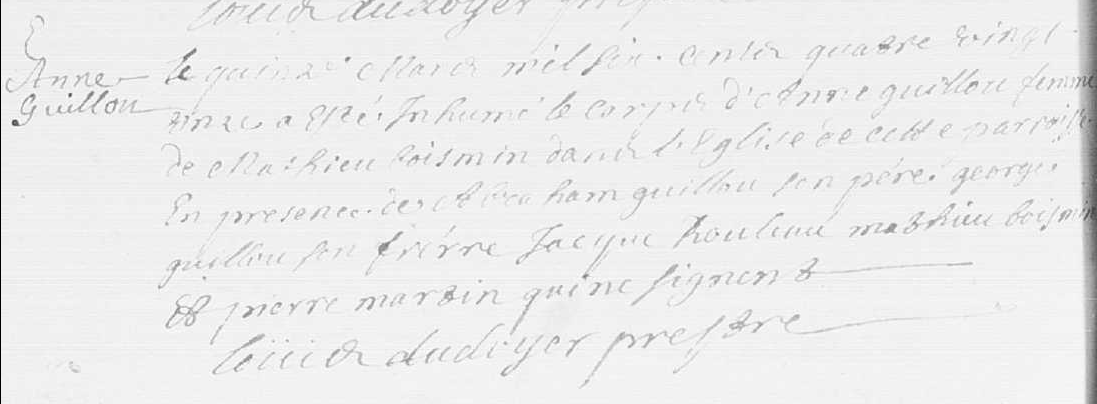 Louis dudoyer prestre
Anne
Guillou
le quinze Mars mil six cents quatre vingt
onze a esté Inhumé le corps d'Anne guillou femme
de Mathieu boismin dans l'Eglise de cette parroisse
En presence de Abraham guillou son pére georges
guillou son frérre Jacque Rouleau mathieu boismin
Et pierre martin qui ne signent
Loüis dudoyer prestre